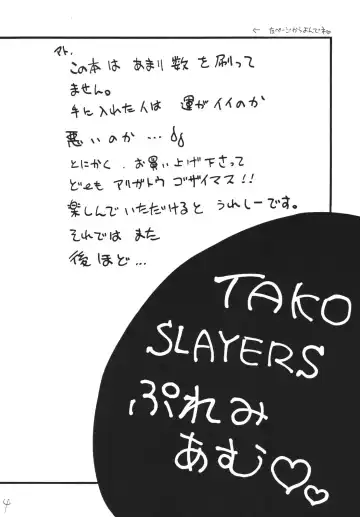 ← 右ページからよんでネ。
マト、
この本は あまり数を刷って
ません。
手に入れた人は 運がイイのか
悪いのか …
とにかく、お買い上げ下さって
どーも アリガトウ ゴザイマス!!
楽しんでいただけると うれしーです。
それでは また
後ほど…
TAKO
SLAYERS
ぷれみ
あむ♡♡
4